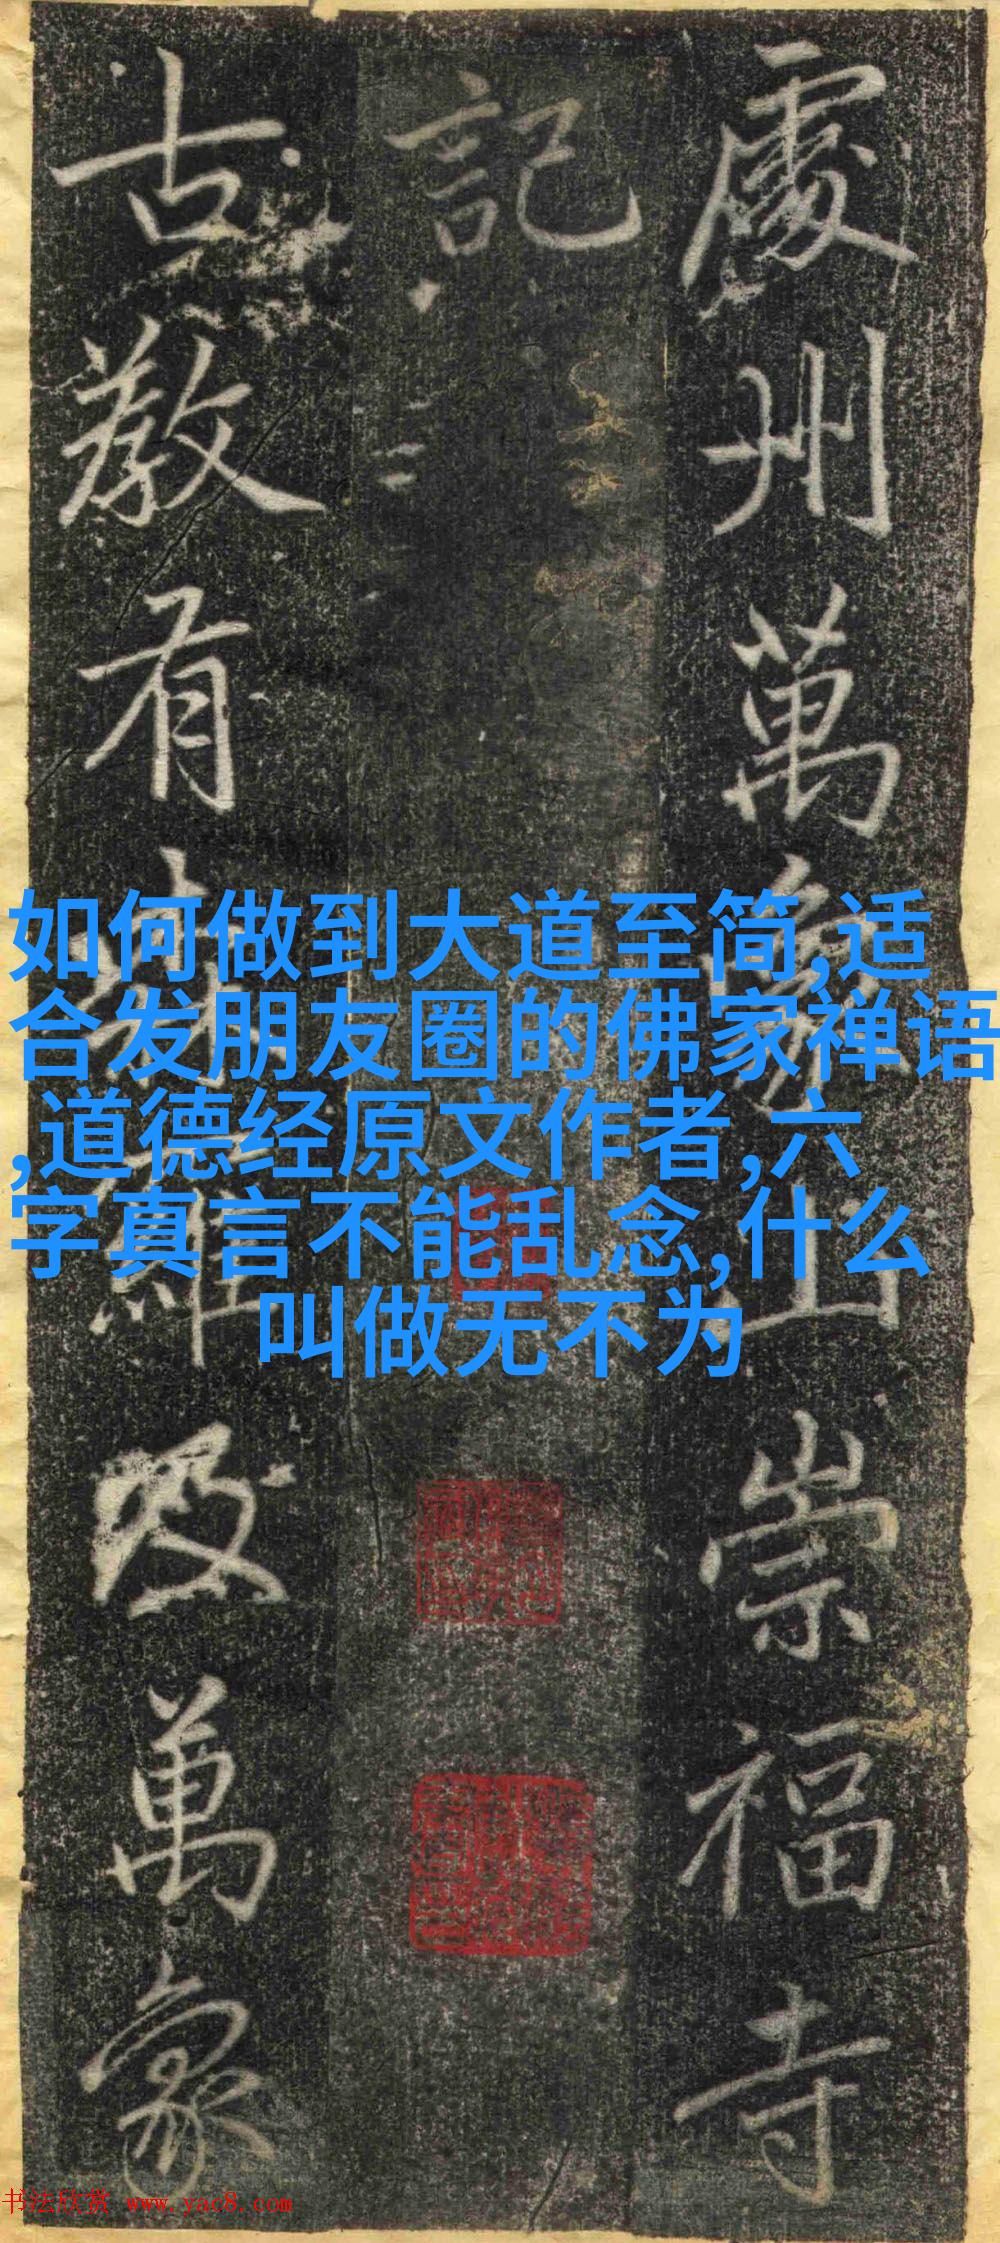 處州萬象山崇福寺
記
古教有
及萬象
如何做到大道至简,适
合发朋友圈的佛家禅语
,道德经原文作者,六
字真言不能乱念,什么
叫做无不为
书法欣赏 www.yac8.com